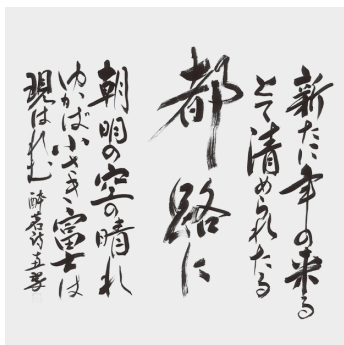 新たに年の来る
とて清められたる
都路に
朝明の空の晴れ
ゆかば小さき富士は
現はれむ
酔茗詩